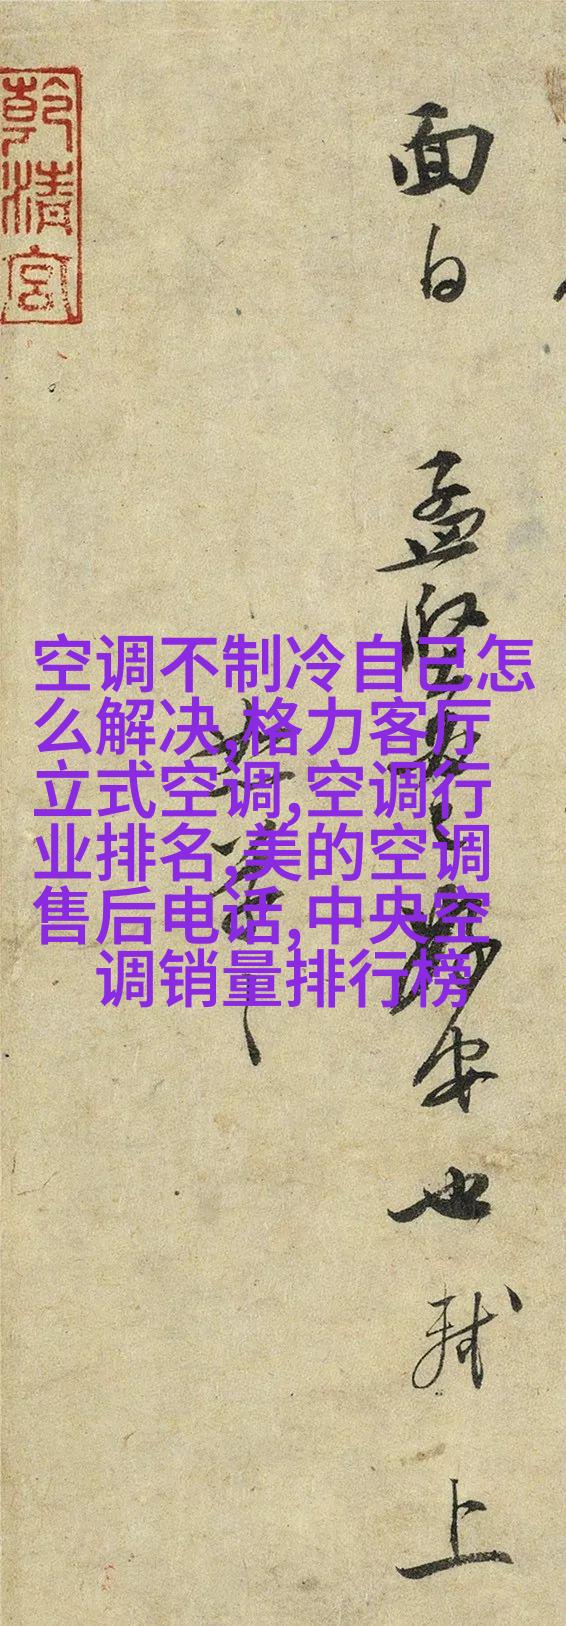 空调不制冷自己怎
么解决,格力客厅
立式空调,空调行
业排名,美的空调
售后电话,中央空
调销量排行榜
面白 孟堅安也軾上
乾清宮